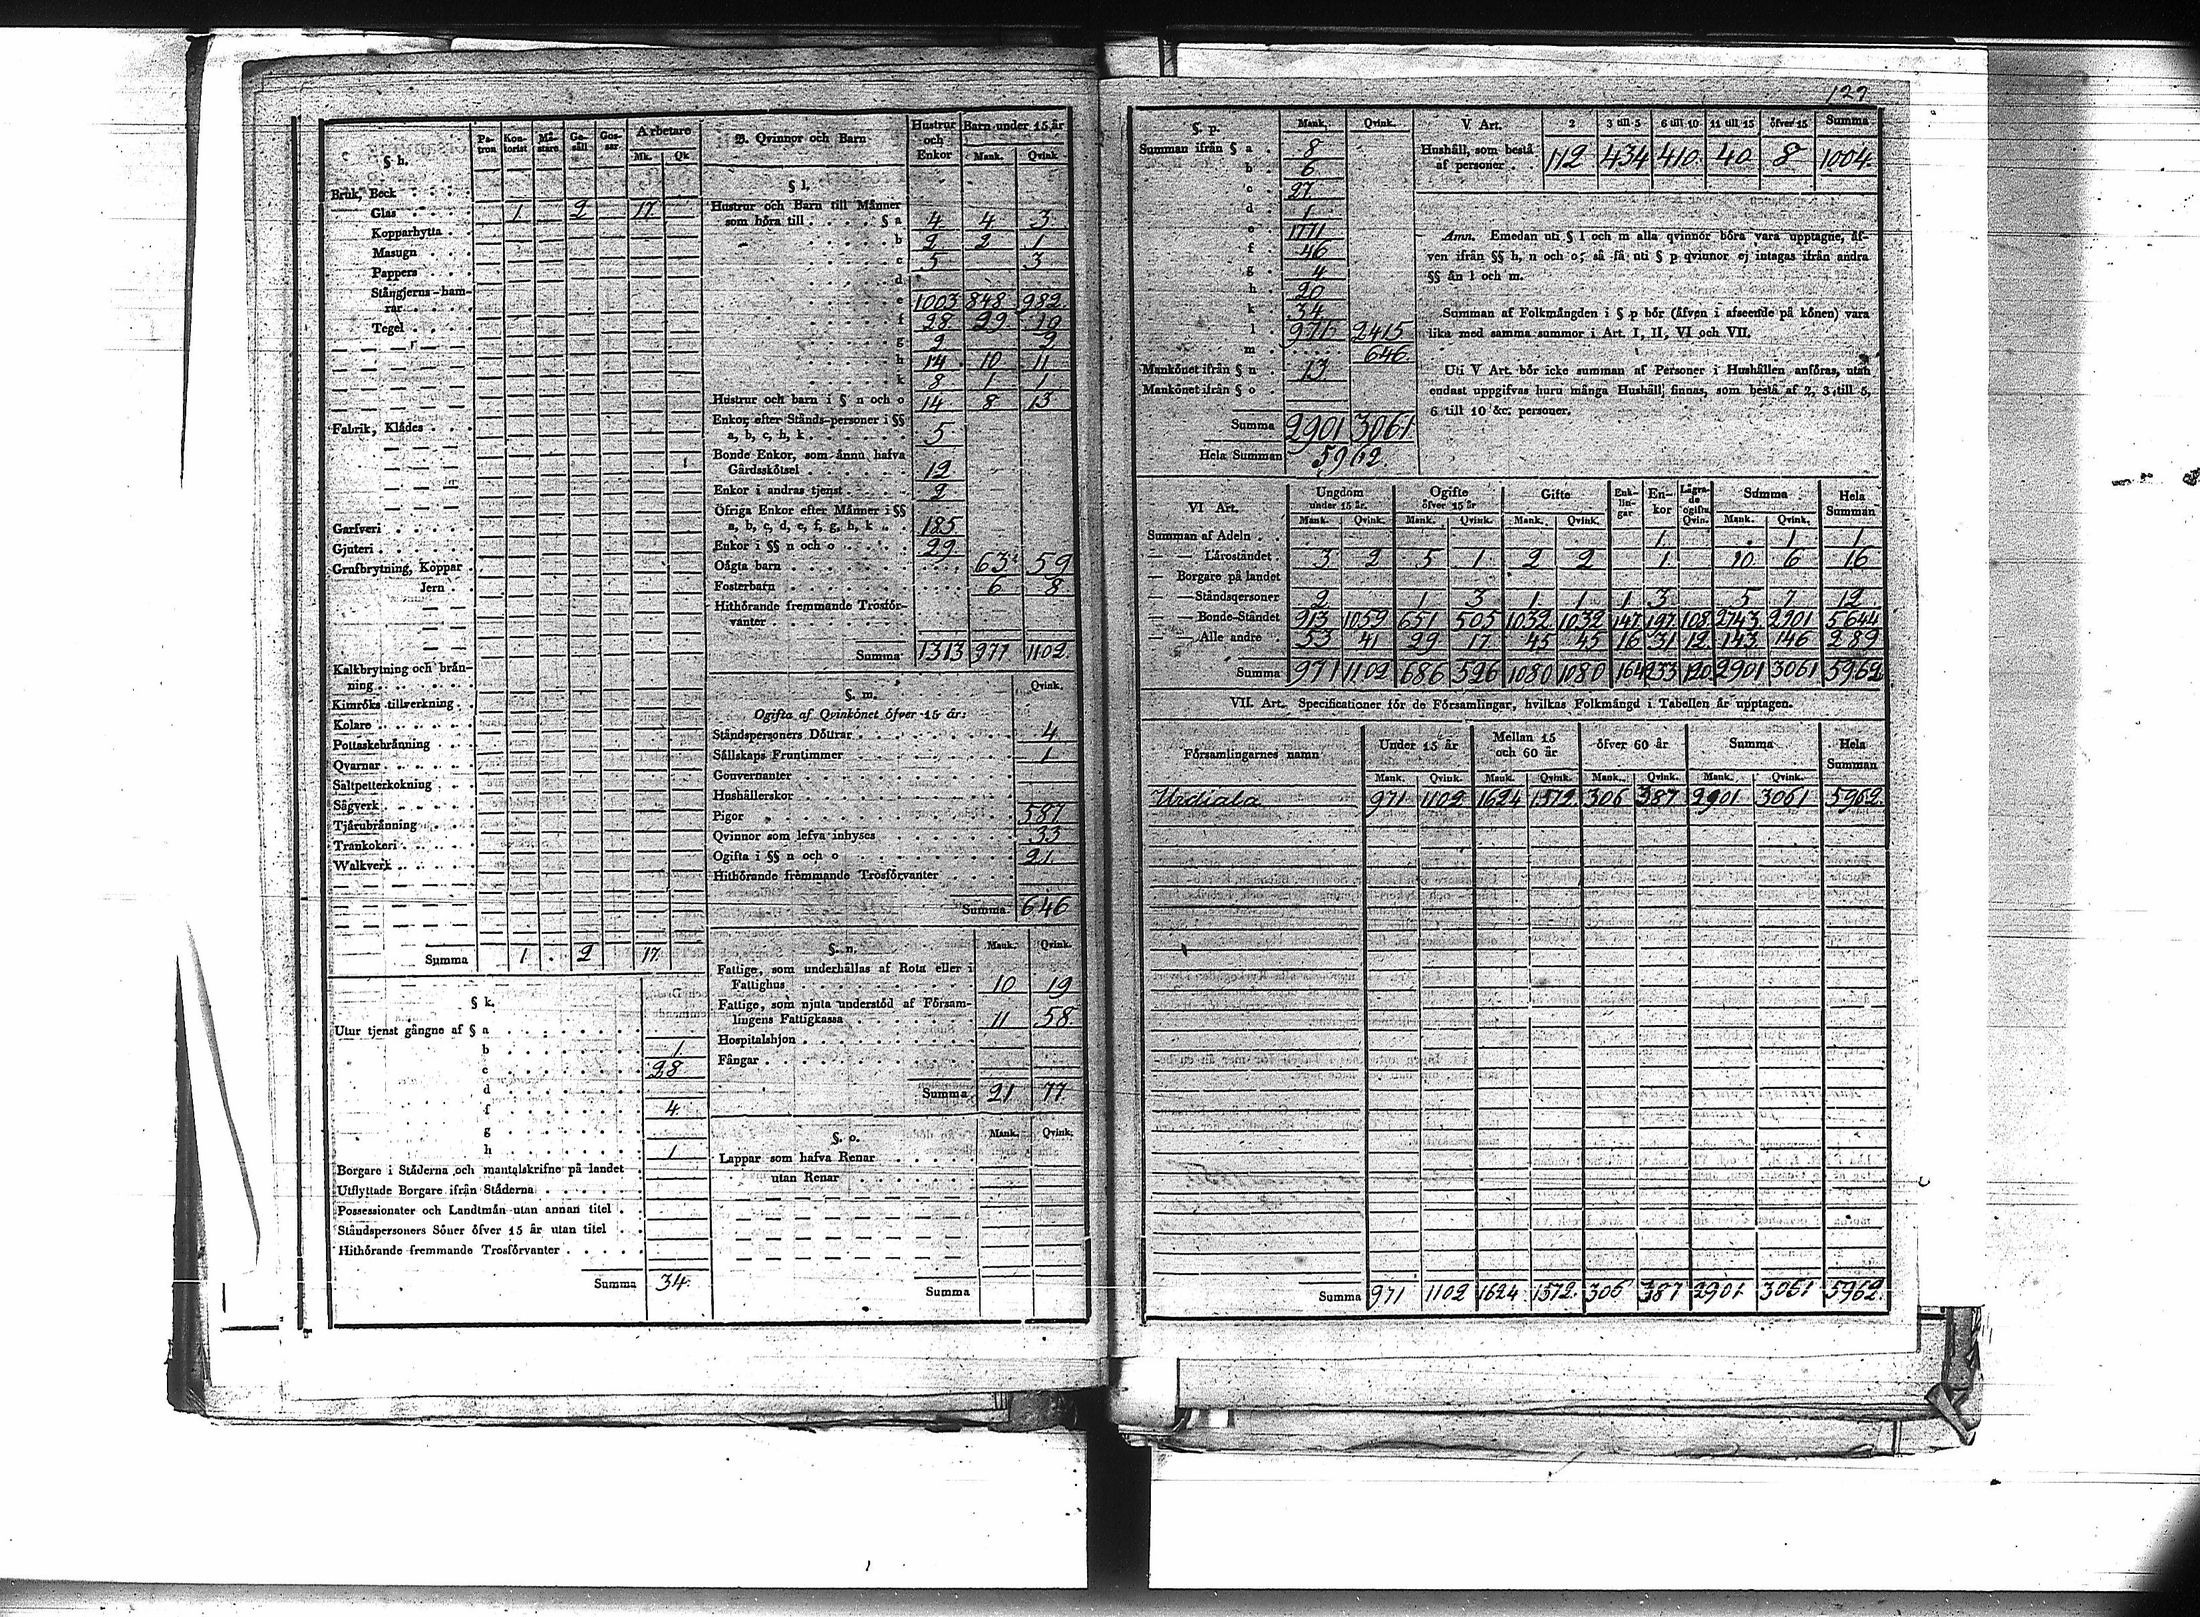 § h. Pa-tron Kon-torist Mä-stare Ge-säll Gos-sar Arbetare Mk. Qk.
Bruk, Beck
Glas 1 2 17
Kopparhytta
Masugn
Pappers
Stångjerns-ham-
rar
Tegel
Fabrik, Klädes
Garfveri
Gjuteri
Grufbrytning, Koppar
Jern
Kalkbrytning och brän-
ning
Kimröks tillverkning
Kolare
Pottaskebränning
Qvarnar
Saltpetterkokning
Sågverk
Tjärubränning
Trankokeri
Walkverk
Summa 1 . 2 17
§ k.
Utur tjenst gångne af § a
b 1
c 28
d
f 4
g
h 1
Borgare i Städerna och mantalskrifne på landet
Utflyttade Borgare ifrån Städerna
Possessionater och Landtmän utan annan titel
Ståndspersoners Söner öfver 15 år utan titel
Hithörande fremmande Trosförvanter
Summa 34
B. Qvinnor och Barn Hustrur och Enkor Barn under 15 år Mank. Qvink.
§ l.
Hustrur och Barn till Männer
som höra till § a 4 4 3
b 2 2 1
c 5 3
d
e 1003 848 982
f 28 29 19
g 2 2
h 14 10 11
k 8 1 1
Hustrur och barn i § n och o 14 8 13
Enkor efter Stånds-personer i §§
a, b, c, h, k 5
Bonde Enkor, som ännu hafva
Gårdsskötsel 12
Enkor i andras tjenst 2
Öfriga Enkor efter Männer i §§
a, b, c, d, e, f, g, h, k 185
Enkor i §§ n och o 29
Oägta barn 63 59
Fosterbarn 6 8
Hithörande fremmande Trosför-
vanter
Summa 1313 971 1102
§. m. Qvink.
Ogifta af Qvinkönet öfver 15 år:
Ståndspersoners Döttrar 4
Sällskaps Fruntimmer 1
Gouvernanter
Hushållerskor
Pigor 587
Qvinnor som lefva inhyses 33
Ogifta i §§ n och o 21
Hithörande fremmande Trosförvanter
Summa 646
§. n. Mank. Qvink.
Fattige, som underhållas af Rota eller i
Fattighus 10 19
Fattige, som njuta understöd af Försam-
lingens Fattigkassa 11 58
Hospitalshjon
Fångar
Summa 21 77
§. o. Mank. Qvink.
Lappar som hafva Renar
utan Renar
Summa
129
§. p. Mank. Qvink.
Summan ifrån § a 8
b 6
c 27
d 1
e 1771
f 46
g 4
h 20
k 34
l 971 2415
m 646
Mankönet ifrån § n 13
Mankönet ifrån § o
Summa 2901 3061
Hela Summan 5962
V Art. 2 3 till 5 6 till 10 11 till 15 öfver 15 Summa
Hushåll, som bestå
af personer 112 434 410 40 8 1004
Amn. Emedan uti § l och m alla qvinnor böra vara upptagne, äf-
ven ifrån §§ h, n och o; så få uti § p qvinnor ej intagas ifrån andra
§§ än l och m.
Summan af Folkmängden i § p bör (äfven i afseende på könen) vara
lika med samma summor i Art. I, II, VI och VII.
Uti V Art. bör icke summan af Personer i Hushållen anföras, utan
endast uppgifvas huru många Hushåll finnas, som bestå af 2, 3 till 5,
6 till 10 &c. personer.
VI Art. Ungdom under 15 år. Ogifte öfver 15 år Gifte Enk-lin-gar En-kor Lägra-de ogifta Qvin. Summa Hela Summan
Mank. Qvink. Mank. Qvink. Mank. Qvink. Mank. Qvink.
Summan af Adeln 1 . 1 1
— — Läroståndet 3 2 5 1 2 2 1 10 6 16
— Borgare på landet
— Ståndspersoner 2 1 3 1 1 1 3 5 7 12
— Bonde-Ståndet 913 1059 651 505 1032 1032 147 197 108 2743 2901 5644
— Alle andre 53 41 29 17 45 45 16 31 12 143 146 289
Summa 971 1102 686 526 1080 1080 164 233 120 2901 3061 5962
VII. Art. Specificationer för de Församlingar, hvilkas Folkmängd i Tabellen är upptagen.
Församlingarnes namn Under 15 år Mellan 15 och 60 år öfver 60 år Summa Hela Summan
Mank. Qvink. Mank. Qvink. Mank. Qvink. Mank. Qvink.
Urdiala 971 1102 1624 1572 306 387 2901 3061 5962
Summa 971 1102 1624 1572 306 387 2901 3061 5962